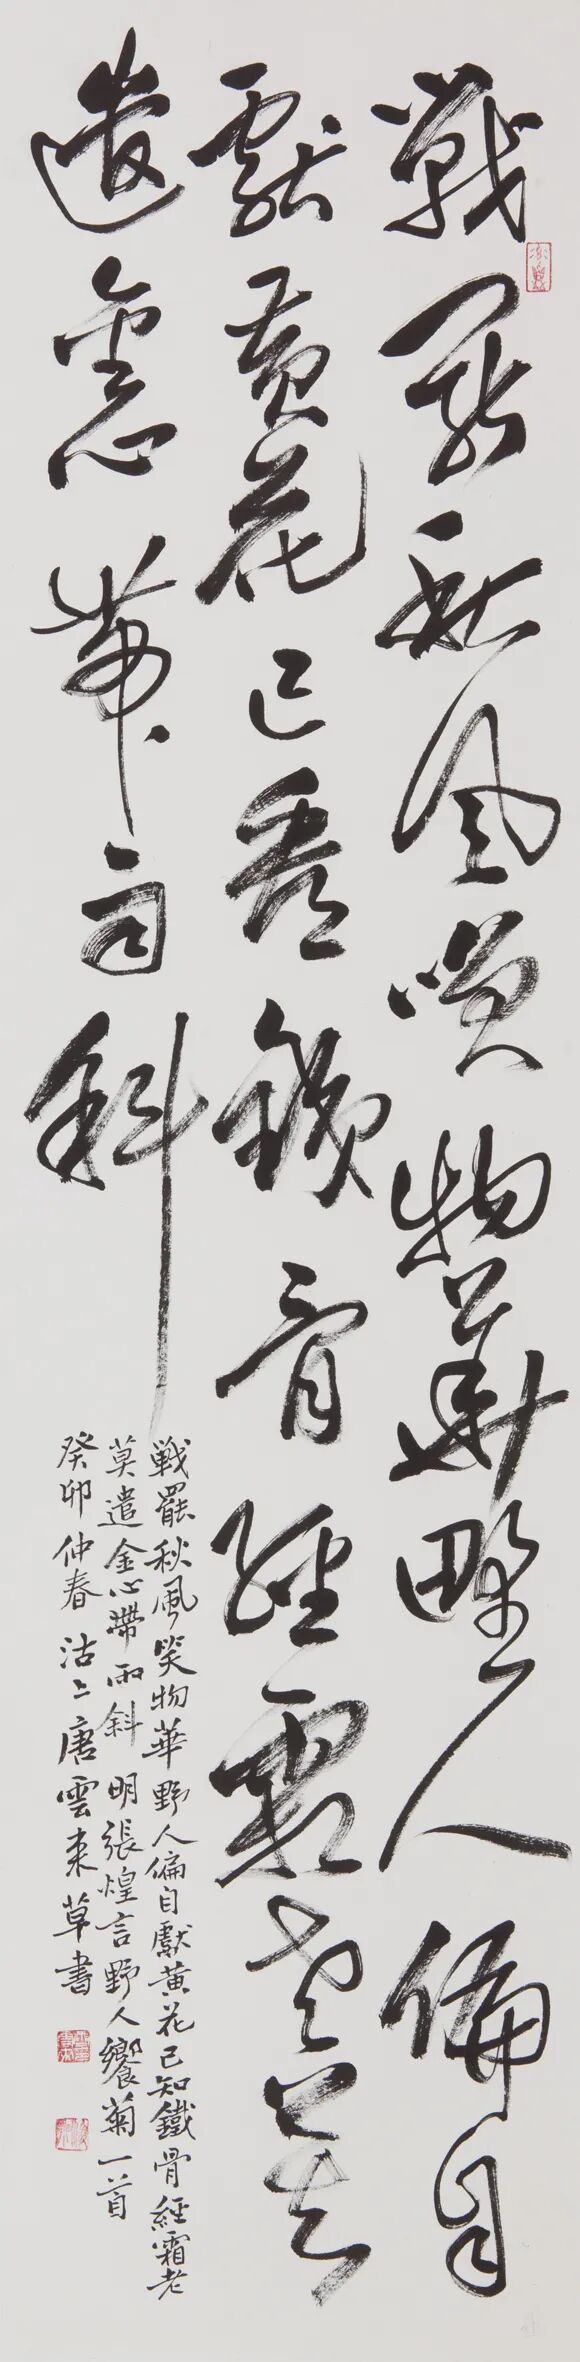 戰罷秋風笑物華野人偏自
獻黃花已看鐵骨經霜老莫
遣金心帶雨斜
戰罷秋風笑物華野人偏自獻黃花已知鐵骨經霜老
莫遣金心帶雨斜 明張煌言野人饗菊一首
癸卯仲春沽上唐雲來草書